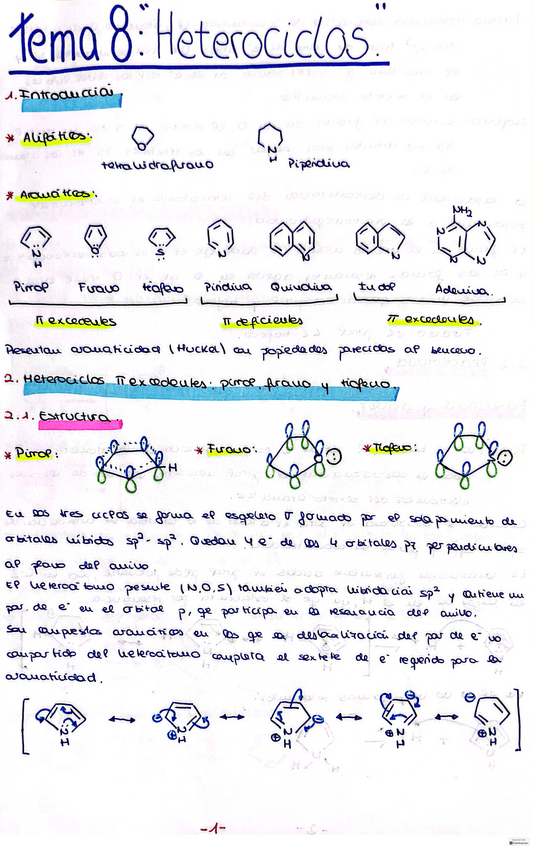 Tema 8: "Heterociclos."
1. Introducción.
* Alifáticos:
tetrahidrofurano Piperidina
* Aromáticos:
Pirrol Furano tiofeno Piridina Quinolina Indol Adenina.
π excedentes π deficientes π excedentes.
Presentan aromaticidad (Hückel) con propiedades parecidas al benceno.
2. Heterociclos π excedentes: pirrol, furano y tiofeno.
2.1. Estructura.
* Pirrol: * Furano: * Tiofeno:
En los tres ciclos se forma el esqueleto σ formado por el solapamiento de
orbitales híbridos sp²-sp². Quedan 4 e⁻ de los 4 orbitales pz perpendiculares
al plano del anillo.
El heteroátomo presente (N,O,S) también adopta hibridación sp² y contiene un
par de e⁻ en el orbital p, que participa en la resonancia del anillo.
Son compuestos aromáticos en los que la deslocalización del par de e⁻ no
compartido del heteroátomo completa el sextete de e⁻ requerido para la
aromaticidad.
-1-